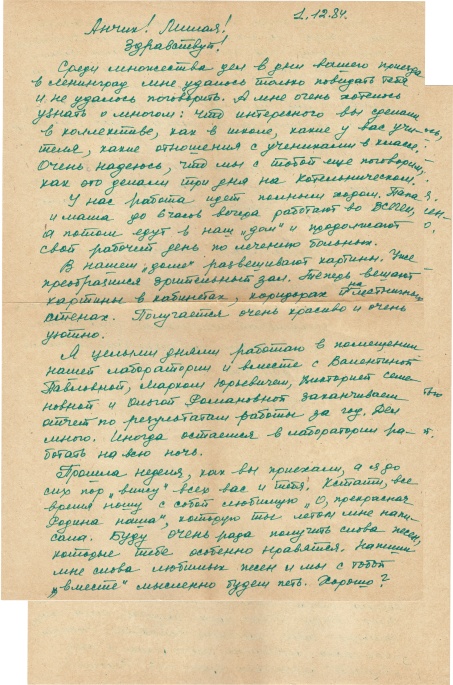 1.12.84.
Анчик! Милая!
Здравствуй!
Среди множества дел в дни вашего приезда
в Ленинград мне удалось только повидать тебя
и не удалось поговорить. А мне очень хотелось
узнать о многом: что интересного вы сделали
в коллективе, как в школе, какие у вас учи-
теля, какие отношения с учениками в классе.
Очень надеюсь, что мы с тобой еще поговорим,
как это делали три дня на Котельническом.
У нас работа идет полным ходом. Папа
и мама до 6 часов вечера работают во
а потом едут в наш „дом" и продолжают
свой рабочий день по лечению больных.
В нашем „доме" развешивают картины. Уже
преобразился зрительный зал. Теперь вешают
картины в кабинетах, коридорах на лестничных
стенах. Получается очень красиво и очень
уютно.
А целыми днями работаю в помещении
нашей лаборатории и вместе с Валентиной
Павловной, Марком Юрьевичем, Викторией Семе-
новной и Ольгой Романовной заканчиваем
отчет по результатам работы за год. Дел
много. Иногда остаемся в лаборатории ра-
ботать на всю ночь.
Прошла неделя, как вы приехали, а я до
сих пор „вижу" всех вас и тебя! Кстати, все
время ношу с собой любимую „О, прекрасная
Родина наша", которую ты летом мне напи-
сала. Буду очень рада получить слова песен,
которые тебе особенно нравятся. Напиши
мне слова любимых песен и мы с тобой
„вместе" мысленно будем петь. Хорошо?